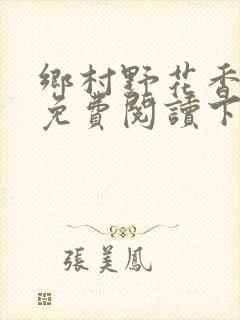 鄉村野花香
免費閱讀下
張美鳳